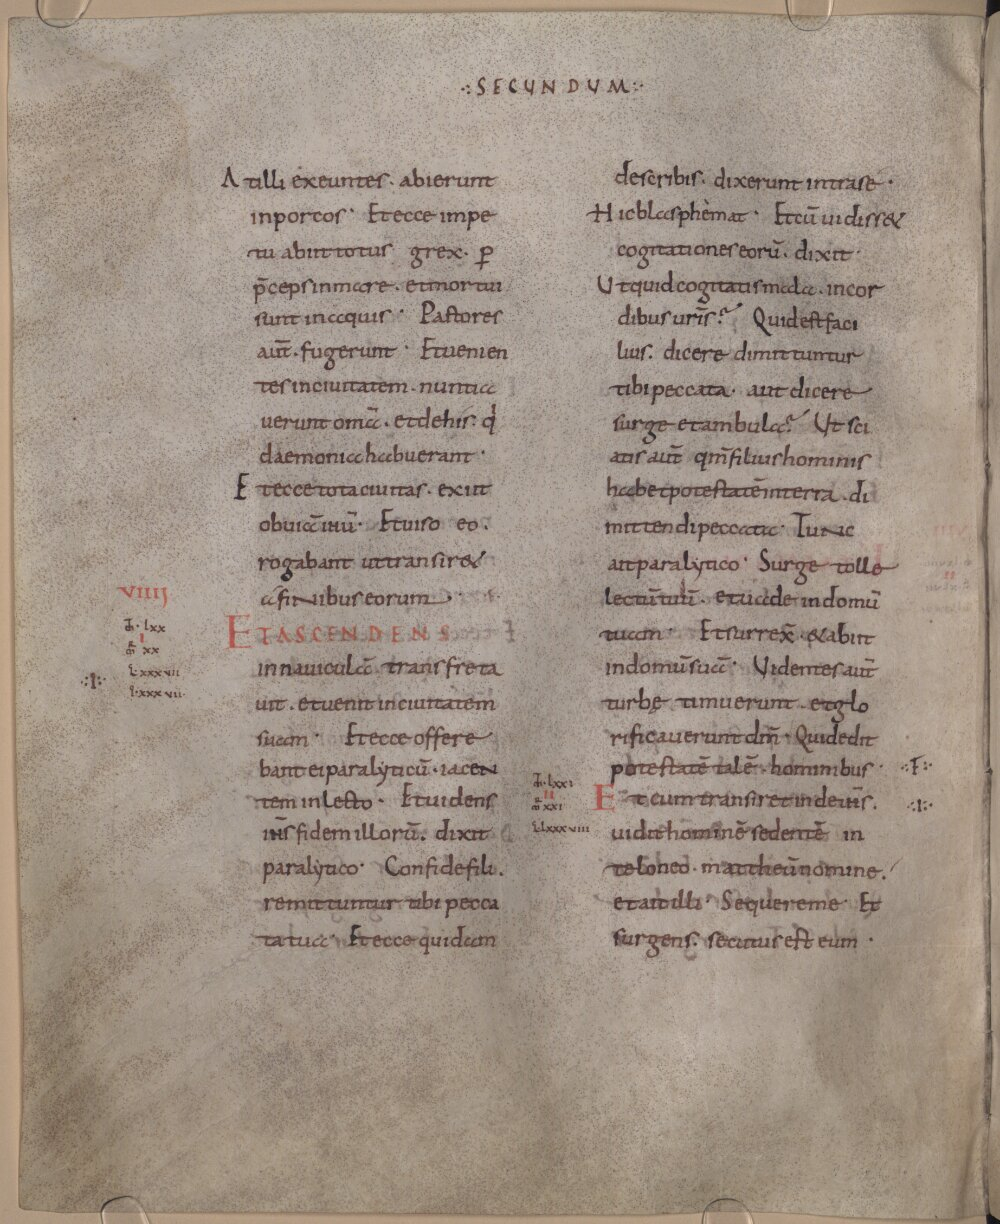 ·:SECUNDUM:·
A tilli exeuntes · abierunt
inporcos · Et ecce impe
tu abiit totus grex · p̱
p̄ceps in mare · et mortui
sunt in aquis · Pastores
aūt · fugerunt · Et uenien
tes in ciuitatem · nuntia
uerunt om̄a · et dehis · q̇
daemonia habuerant ·
E t ecce tota ciuitas · exiit
obuiā iħū · Et uiso eo ·
rogabant ut transiret
a finibus eorum
VIIII
ET ASCENDENS
in nauiculā · transfreta
uit · et uenit in ciuitatēm
suam · Et ecce offere
bant ei paralyticū · iacen
tem in lecto · Et uidens
iħs fidem illorū · dixit
paralytico · Confide fili ·
remittuntur tibi pecca
ta tua · Et ecce quidam
· lxx
I
xx
L· xxxvii
L· xxxvii
·:I:·
describis · dixerunt intra se ·
H ic blasphemat · Et cū uidisset
cogitationes eorū · dixit ·
U t quid cogitatis mala · in cor
dibus uris̄? Quid est faci
lius · dicere dimittuntur
tibi peccata · aut dicere
surge et ambula? Ut sci
atis aūt qm̄ filius hominis
habet potestatē in terra · di
mittendi peccata · Tunc
ait paralytico · Surge tolle
lectū tuū · et uade in domū
tuam · Et surrex̄ · et abiit
in domū suā · Videntes aūt
turbę timuerunt · et glo
rificauerunt dm̄ · Qui dedit
potestatē talē · hominibus ·
·:F:·
E t cum transiret inde iħs ·
·:I:·
uidit hominē sedentē in
teloneo · mattheū nomine ·
et ait illi · Sequere me · Et
surgens · secutus est eum ·
· lxxi
II
xxi
L· lxxxviii